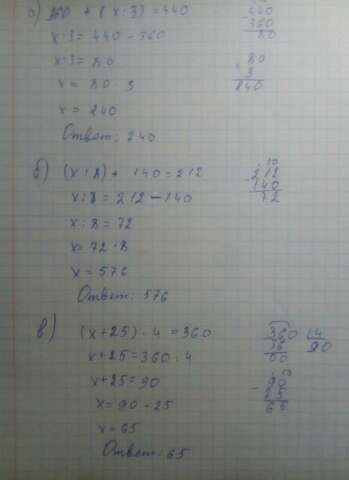 а) 360 + (x : 3) = 440
x : 3 = 440 - 360
x : 3 = 80
x = 80 · 3
x = 240
Ответ: 240
440
- 360
80
80
3
240
б) (x : 8) + 140 = 212
x : 8 = 212 - 140
x : 8 = 72
x = 72 · 8
x = 576
Ответ: 576
10
- 212
140
72
в) (x + 25) · 4 = 360
x + 25 = 360 : 4
x + 25 = 90
x = 90 - 25
x = 65
Ответ: 65
360 4
36 90
00
10
- 90
25
65